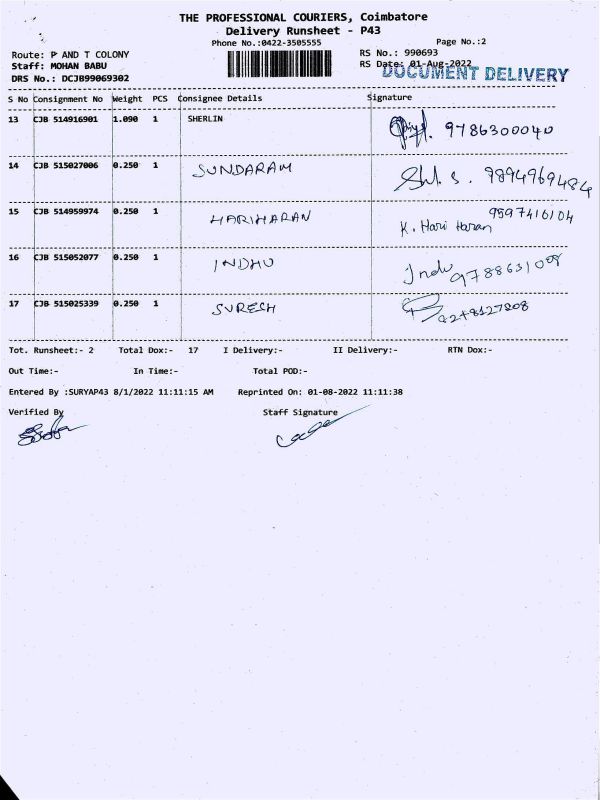 THE PROFESSIONAL COURIERS, Coimbatore
Delivery Runsheet - P43
Phone No.:0422-3505555
Page No.:2
Route: P AND T COLONY
RS No.: 990693
Staff: MOHAN BABU
RS Date: 01-Aug-2022
DOCUMENT DELIVERY
DRS No.: DCJB99069302
S No Consignment No Weight PCS Consignee Details Signature
13 CJB 514916901 1.090 1 SHERLIN 9786300040
14 CJB 515027006 0.250 1 SUNDARAM S. 9894969484
15 CJB 514959974 0.250 1 HARIHARAN 9597416104
K. Hari Haran
16 CJB 515052077 0.250 1 INDHU Indu 9788631009
17 CJB 515025339 0.250 1 SURESH
Tot. Runsheet:- 2 Total Dox:- 17 I Delivery:- II Delivery:- RTN Dox:-
Out Time:- In Time:- Total POD:-
Entered By :SURYAP43 8/1/2022 11:11:15 AM Reprinted On: 01-08-2022 11:11:38
Verified By Staff Signature